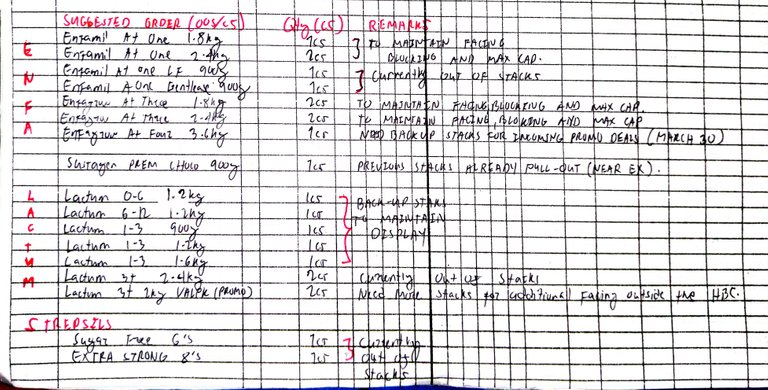 SUGGESTED ORDER (OOS/CS) QTY (CS) REMARKS
Enfamil At One 1.8kg 1cs TO MAINTAIN FACING
E Enfamil At One 2.4kg 2cs BLOCKING AND MAX CAP.
N Enfamil At one LF 900g 1cs Currently OUT OF STACKS
Enfamil A One Gentlease 900g 1cs
F Enfagrow At Three 1.8kg 2cs TO MAINTAIN FACING, BLOCKING AND MAX CAP.
A Enfagrow At Three 2.4kg 2cs TO MAINTAIN FACING, BLOCKING AND MAX CAP
Enfagrow At Four 3.6kg 1cs NEED BACK UP STACKS FOR INCOMING PROMO DEALS (MARCH 30)
Sustagen PREM CHOCO 900g 1cs PREVIOUS STACKS ALREADY PULL-OUT (NEAR EX).
L Lactum 0-6 1.2kg 1cs BACK-UP STAKS
A Lactum 6-12 1.2kg 1cs TO MAINTAIN
C Lactum 1-3 900g 1cs DISPLAY
T Lactum 1-3 1.2kg 1cs
U Lactum 1-3 1.6kg 1cs
M Lactum 3+ 2.4kg 2cs Currently Out OF Stacks
Lactum 3+ 2kg VALPK (PROMO) 2cs Need More Stacks for additional Facing outside the HBC.
STREPSILS
Sugar Free 6's 1cs Currently
EXTRA STRONG 8's 1cs Out of
Stacks